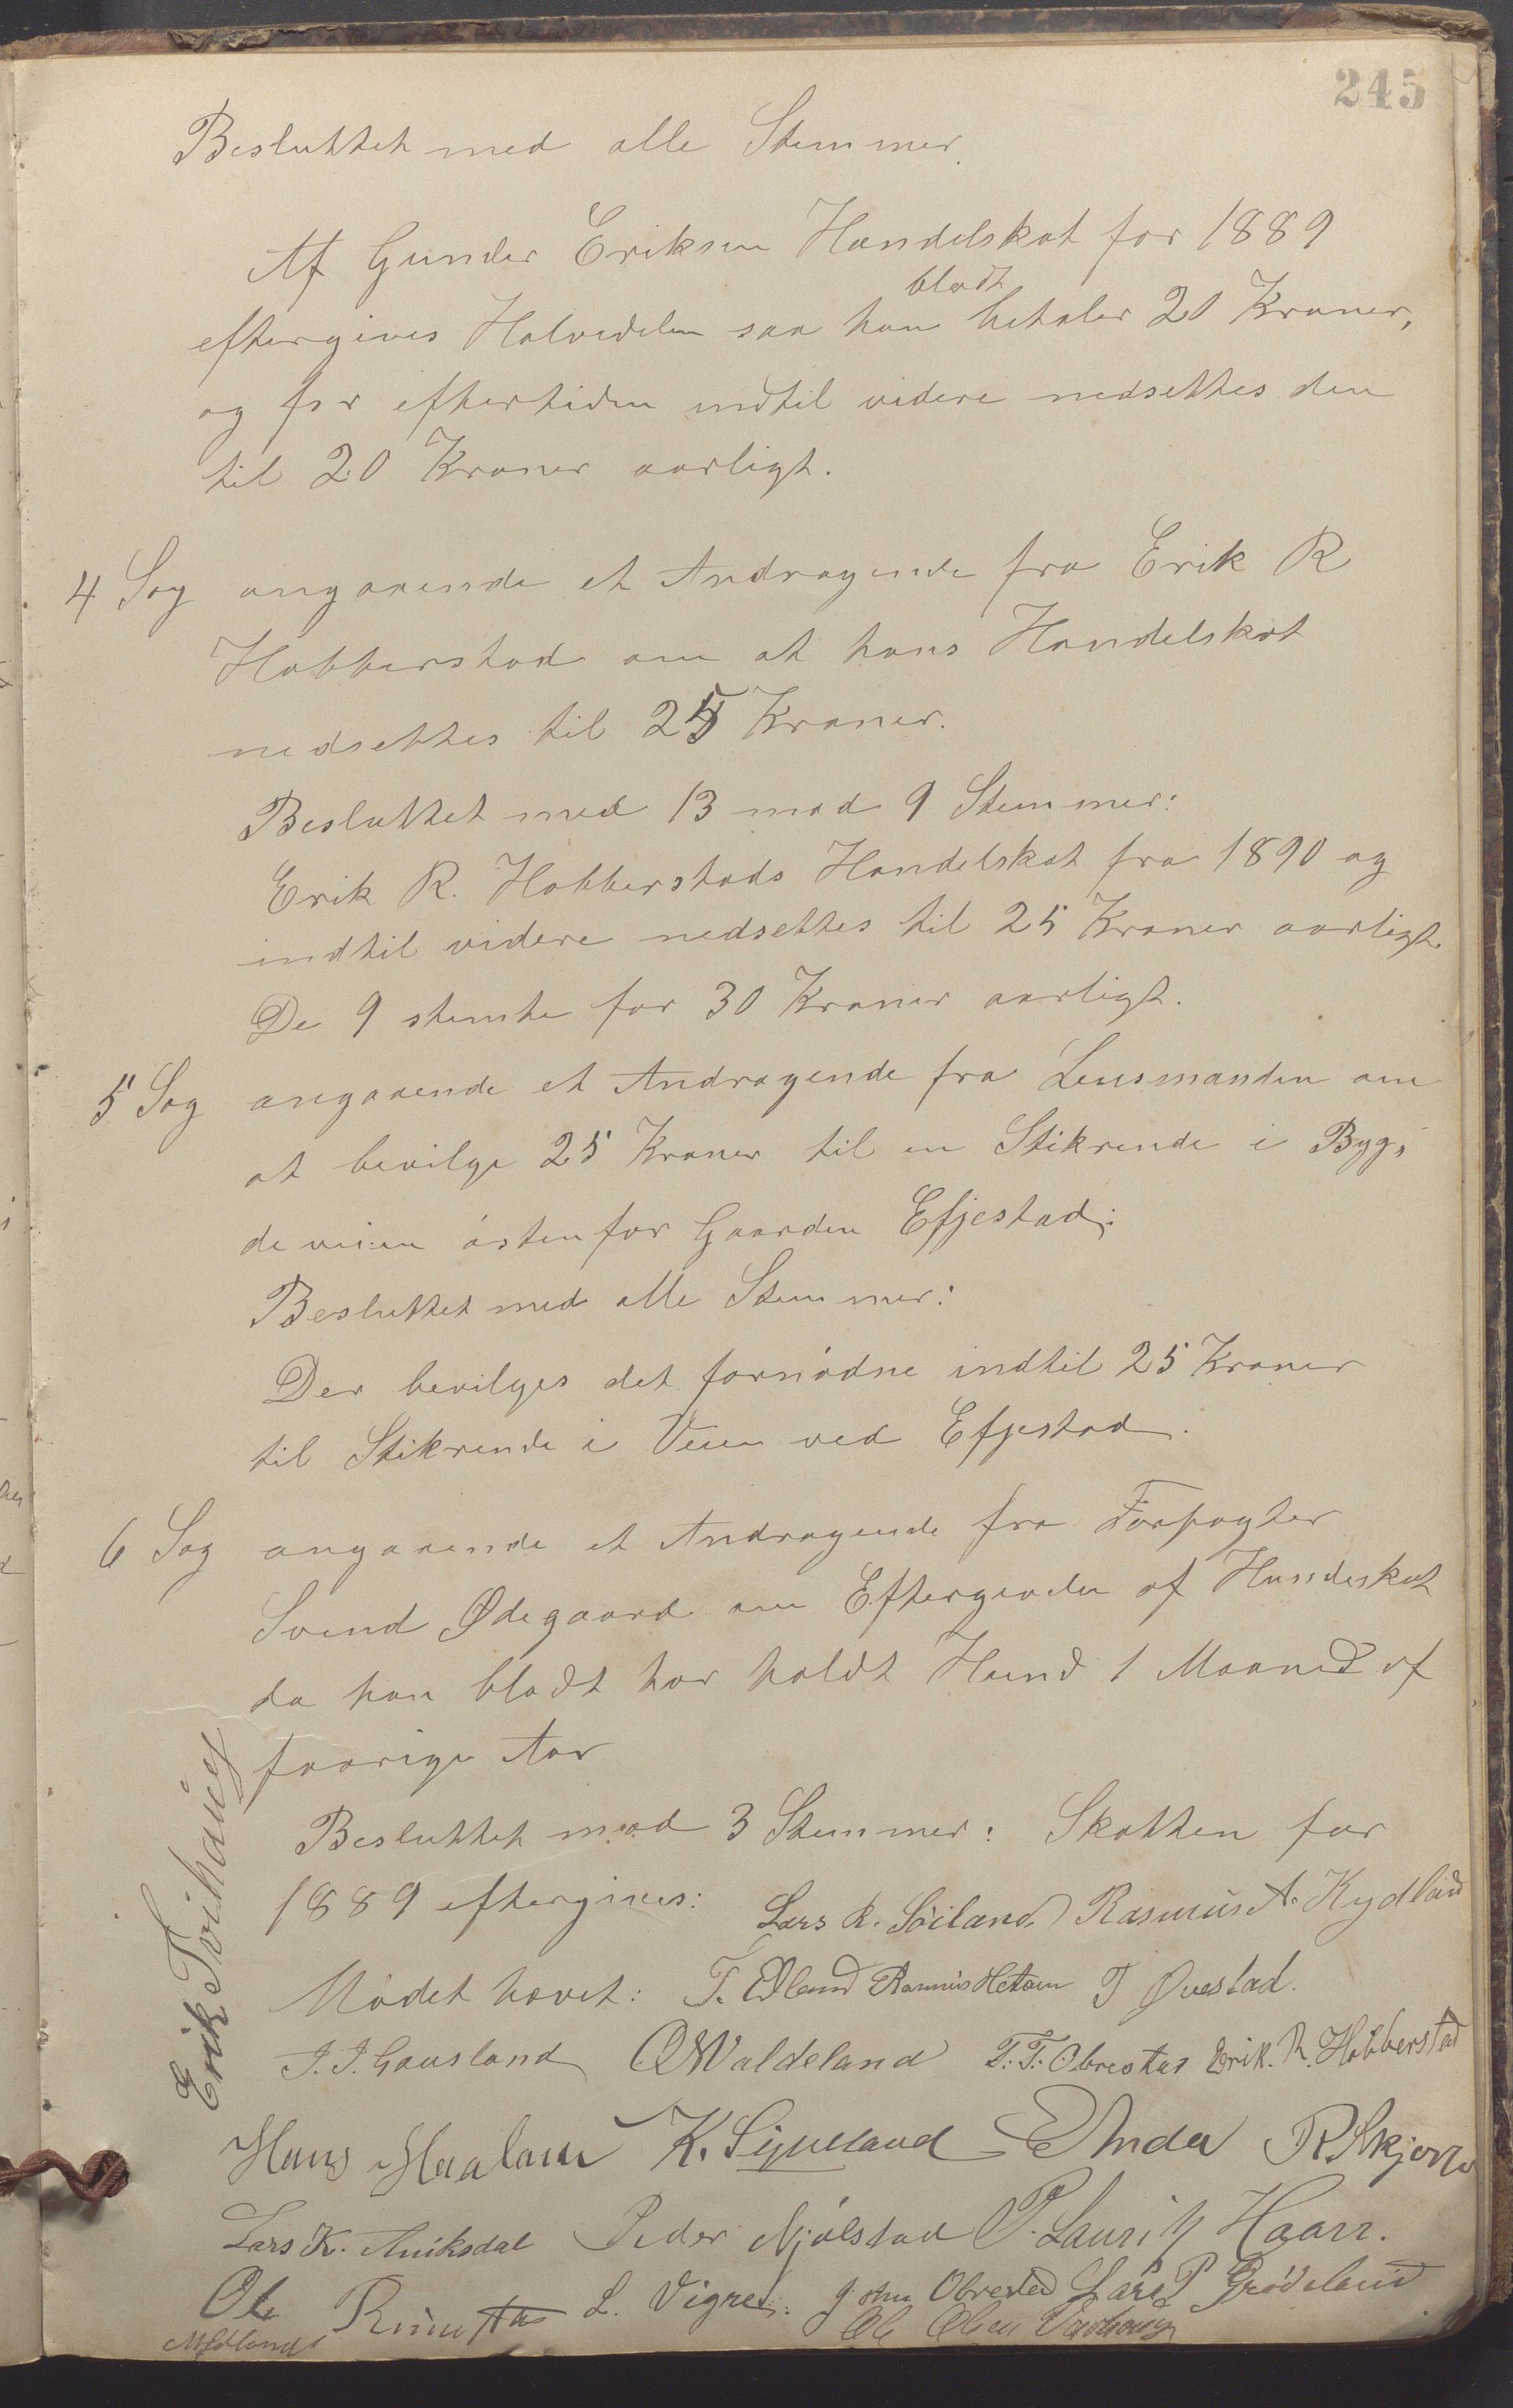 245
Besluttet med alle Stemmer.
Af Gunder Eriksen Handelskat for 1889
blodt
eftergives Halvedelen saa han betaler 20 Kroner,
og for eftertiden indtil videre nedsettes den
til 20 Kroner aarligt.
4 Sag angaaende et Andragende fra Erik R
Hobberstad om at hans Handelskat
nedsettes til 25 Kroner.
Besluttet med 13 mod 9 Stemmer:
Erik R. Hobberstads Handelskat fra 1890 og
indtil videre nedsettes til 25 Kroner aarligt.
De 9 stemte for 30 Kroner aarligt.
5 Sag angaaende et Andragende fra Lensmanden om
at bevilge 25 Kroner til en Stikrende i Byg,
deveien østenfor Gaarden Efjestad:
Besluttet med alle Stemmer:
Der bevilges det fornødne indtil 25 Kroner
til Stikrende i Veien ved Efjestad.
6 Sag angaaende et Andragende fra Forpagter
Svend Ødegaard om Eftergivelse af Hundeskat
da han blodt har holdt Hund 1 Maaned af
forrige Aar
Besluttet mod 3 Stemmer: Skatten for
1889 eftergives:
Lars R. Söiland Rasmus A. Kydland
Mødet hævet: T. Edland Rasmus T Qvestad.
J. J. Gausland O Waldeland T. T. Obrestad Erik. R. Hobberstad
Hans Haaland K. Sigveland E Anda R Skjorre
Lars K. Aniksdal Peder Njølstad P. Lauritz Haarr.
Ole L. Vigre. John Obrestad Lars P Grödeland
M Edland Ole Olsen Varhoug
Erik